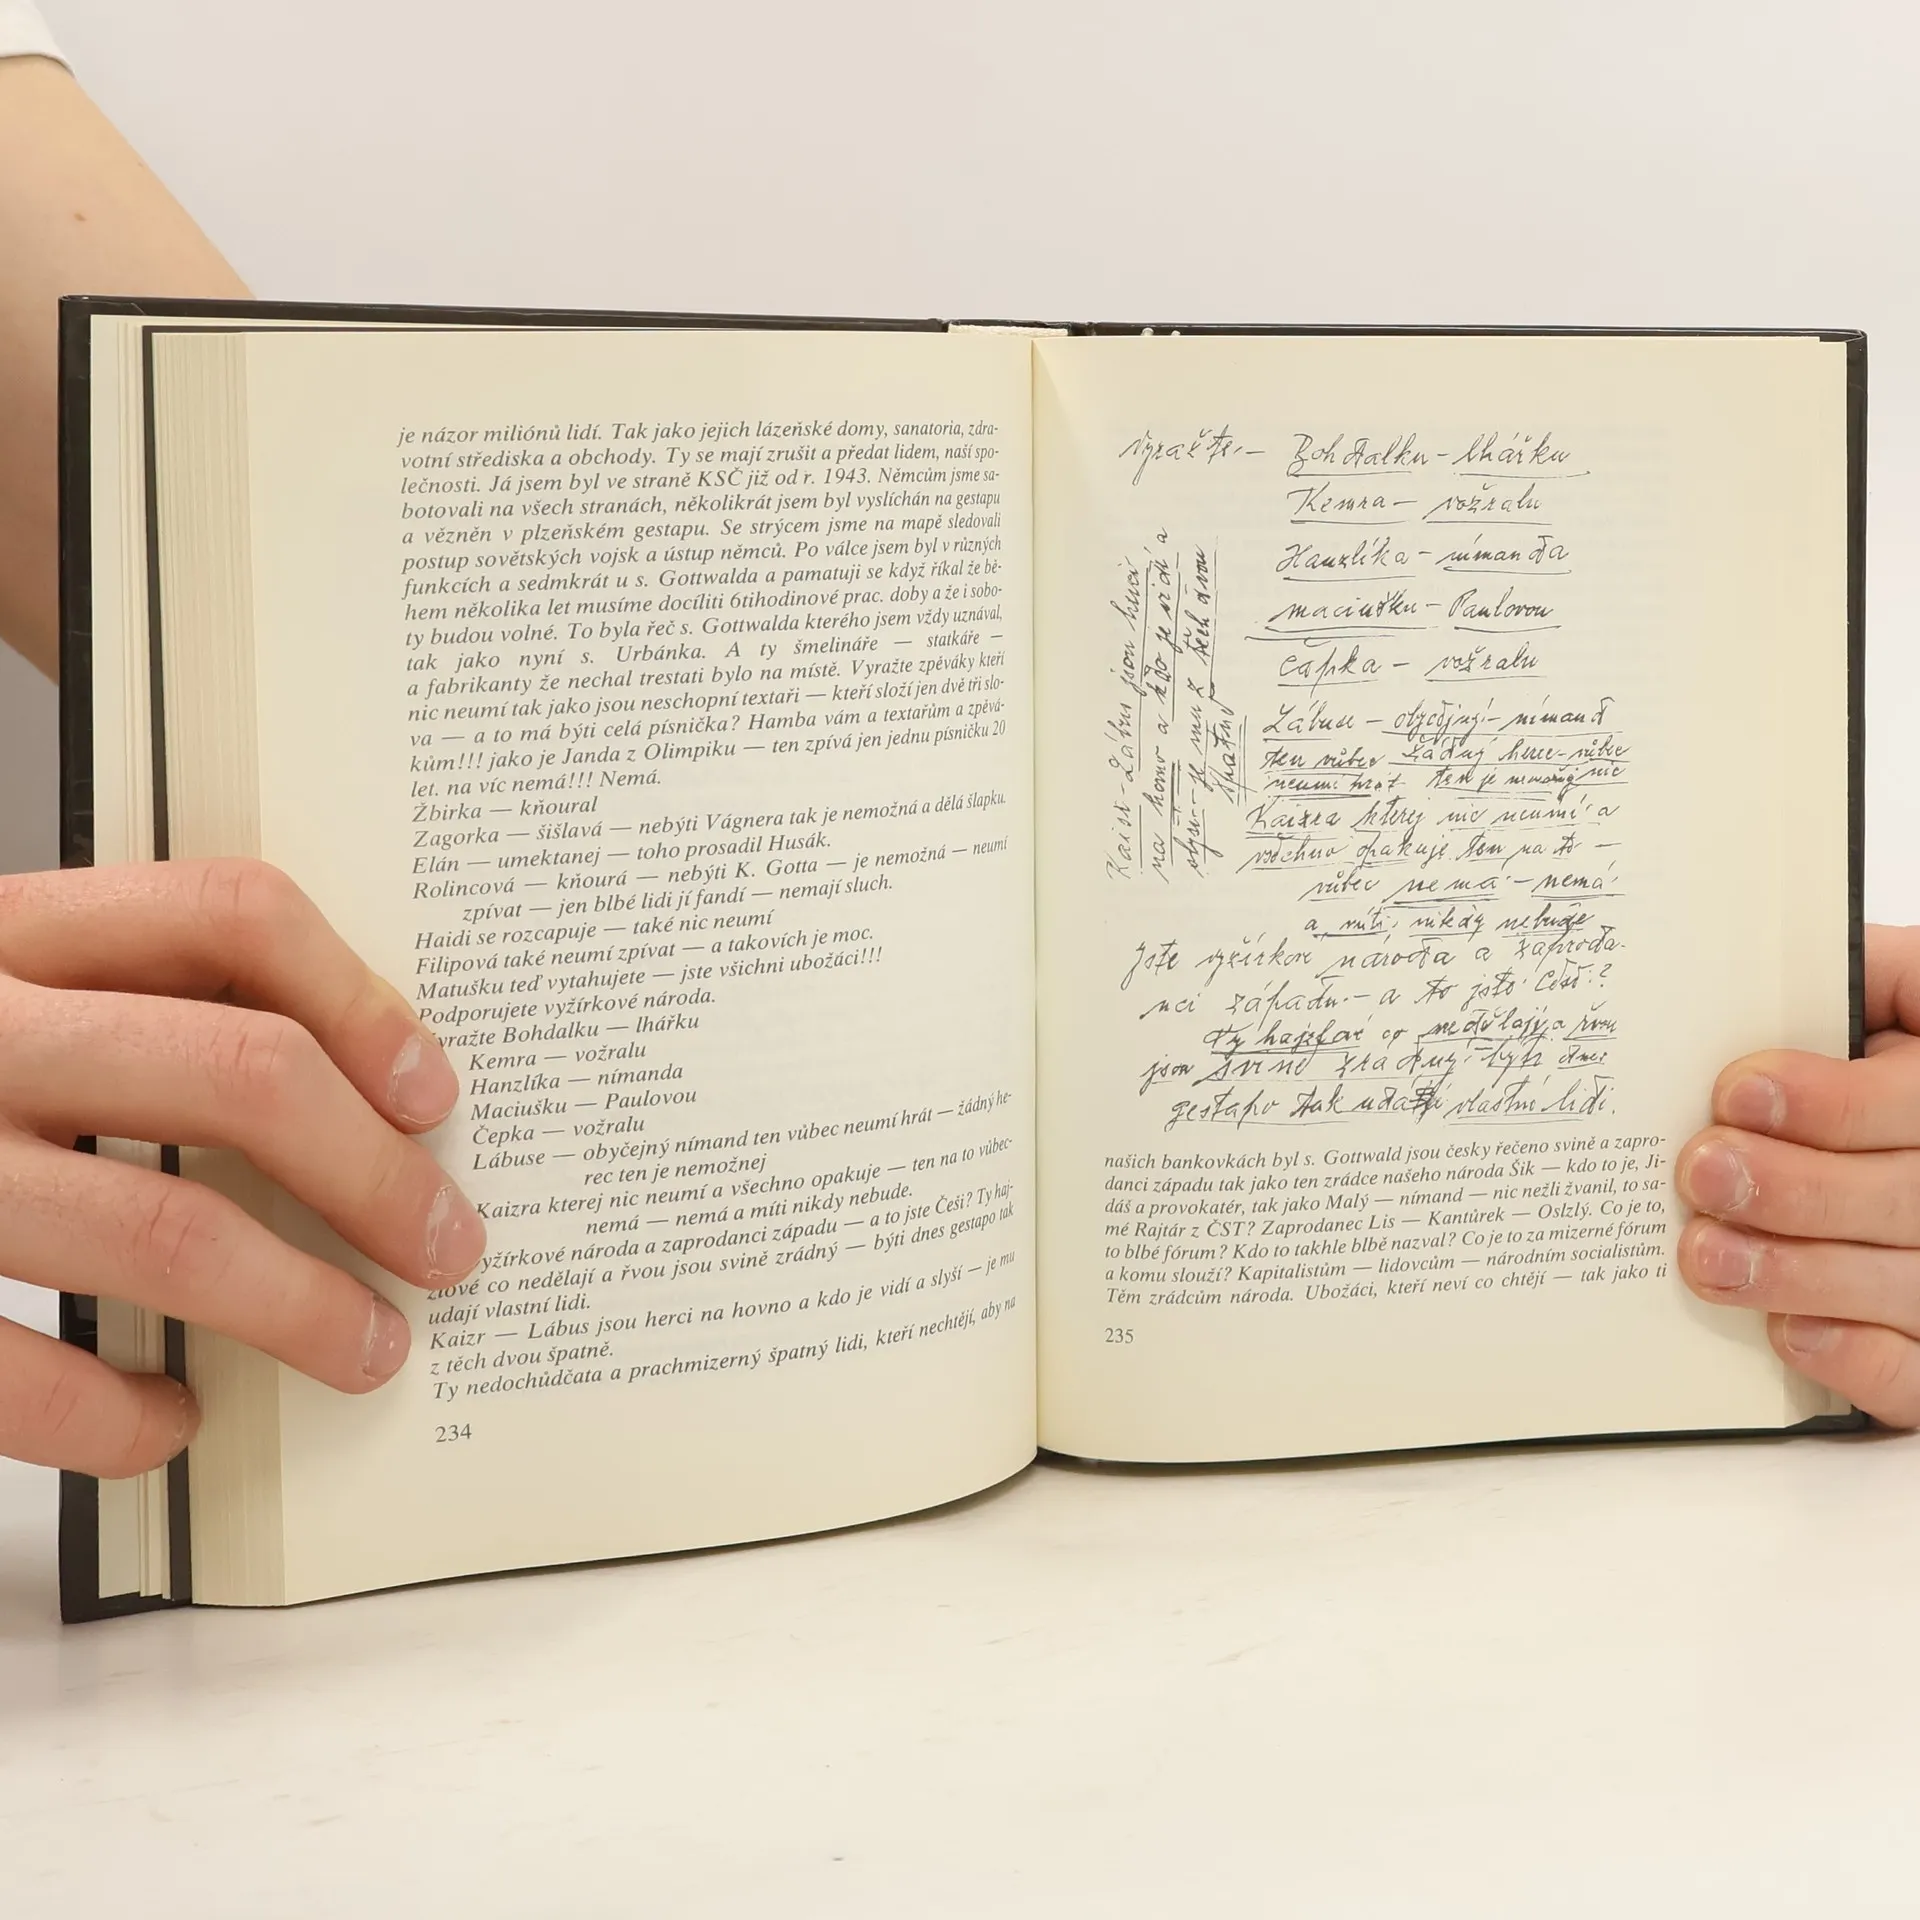 je názor miliónů lidí. Tak jako jejich lázeňské domy, sanatoria, zdra-
votní střediska a obchody. Ty se mají zrušit a předat lidem, naší spo-
lečnosti. Já jsem byl ve straně KSČ již od r. 1943. Němcům jsme sa-
botovali na všech stranách, několikrát jsem byl vyslíchán na gestapu
a vězněn v plzeňském gestapu. Se strýcem jsme na mapě sledovali
postup sovětských vojsk a ústup němců. Po válce jsem byl v různých
funkcích a sedmkrát u s. Gottwalda a pamatuji se když říkal že bě-
hem několika let musíme docíliti 6tihodinové prac. doby a že i sobo-
ty budou volné. To byla řeč s. Gottwalda kterého jsem vždy uznával,
tak jako nyní s. Urbánka. A ty šmelináře — statkáře —
a fabrikanty že nechal trestati bylo na místě. Vyražte zpěváky kteří
nic neumí tak jako jsou neschopní textaři — kteří složí jen dvě tři slo-
va — a to má býti celá písnička? Hamba vám a textařům a zpěvá-
kům!!! jako je Janda z Olimpiku — ten zpívá jen jednu písničku 20
let. na víc nemá!!! Nemá.
Žbirka — kňoural
Zagorka — šišlavá — nebýti Vágnera tak je nemožná a dělá šlapku.
Elán — umektanej — toho prosadil Husák.
Rolincová — kňourá — nebýti K. Gotta — je nemožná — neumí
zpívat — jen blbé lidi jí fandí — nemají sluch.
Haidi se rozcapuje — také nic neumí
Filipová také neumí zpívat — a takovích je moc.
Matušku teď vytahujete — jste všichni ubožáci!!!
Podporujete vyžírkové národa.
yražte Bohdalku — lhářku
Kemra — vožralu
Hanzlíka — nímanda
Maciušku — Paulovou
Čepka — vožralu
Lábuse — obyčejný nímand ten vůbec neumí hrát — žádný he-
rec ten je nemožnej
Kaizra kterej nic neumí a všechno opakuje — ten na to vůbec-
nemá — nemá a míti nikdy nebude.
yžírkové národa a zaprodanci západu — a to jste Češi? Ty haj-
zlové co nedělají a řvou jsou svině zrádný — býti dnes gestapo tak
udají vlastní lidi.
Kaizr — Lábus jsou herci na hovno a kdo je vidí a slyší — je mu
z těch dvou špatně.
Ty nedochůdčata a prachmizerný špatný lidi, kteří nechtějí, aby na
234
Vyražte: — Bohdalku — lhářku
Kemra — vožralu
Hanzlíka — nímanda
maciušku — Paulovou
čápka — vožralu
Lábuse — obyčejný — nímand
ten vůbec žádný herec — vůbec
neumí hrát ten je nemožný nic
Kaizra kterej nic neumí a
všechno opakuje ten na to —
vůbec nemá — nemá
a míti nikdy nebude
Jste vyžírkové národa a zaproda-
nci západu — a to jste Češi?
Ty hajzlové co nedělají a řvou
jsou svině zrádný — býti dnes
gestapo tak udají vlastní lidi.
Kaizr — Lábus jsou herci
na hovno a kdo je vidí a
slyší — je mu z těch dvou
špatně
našich bankovkách byl s. Gottwald jsou česky řečeno svině a zapro-
danci západu tak jako ten zrádce našeho národa Šik — kdo to je, Ji-
dáš a provokatér, tak jako Malý — nímand — nic nežli žvanil, to sa-
mé Rajtár z ČST? Zaprodanec Lis — Kantůrek — Oslzlý. Co je to,
to blbé fórum? Kdo to takhle blbě nazval? Co je to za mizerné fórum
a komu slouží? Kapitalistům — lidovcům — národním socialistům.
Těm zrádcům národa. Ubožáci, kteří neví co chtějí — tak jako ti
235